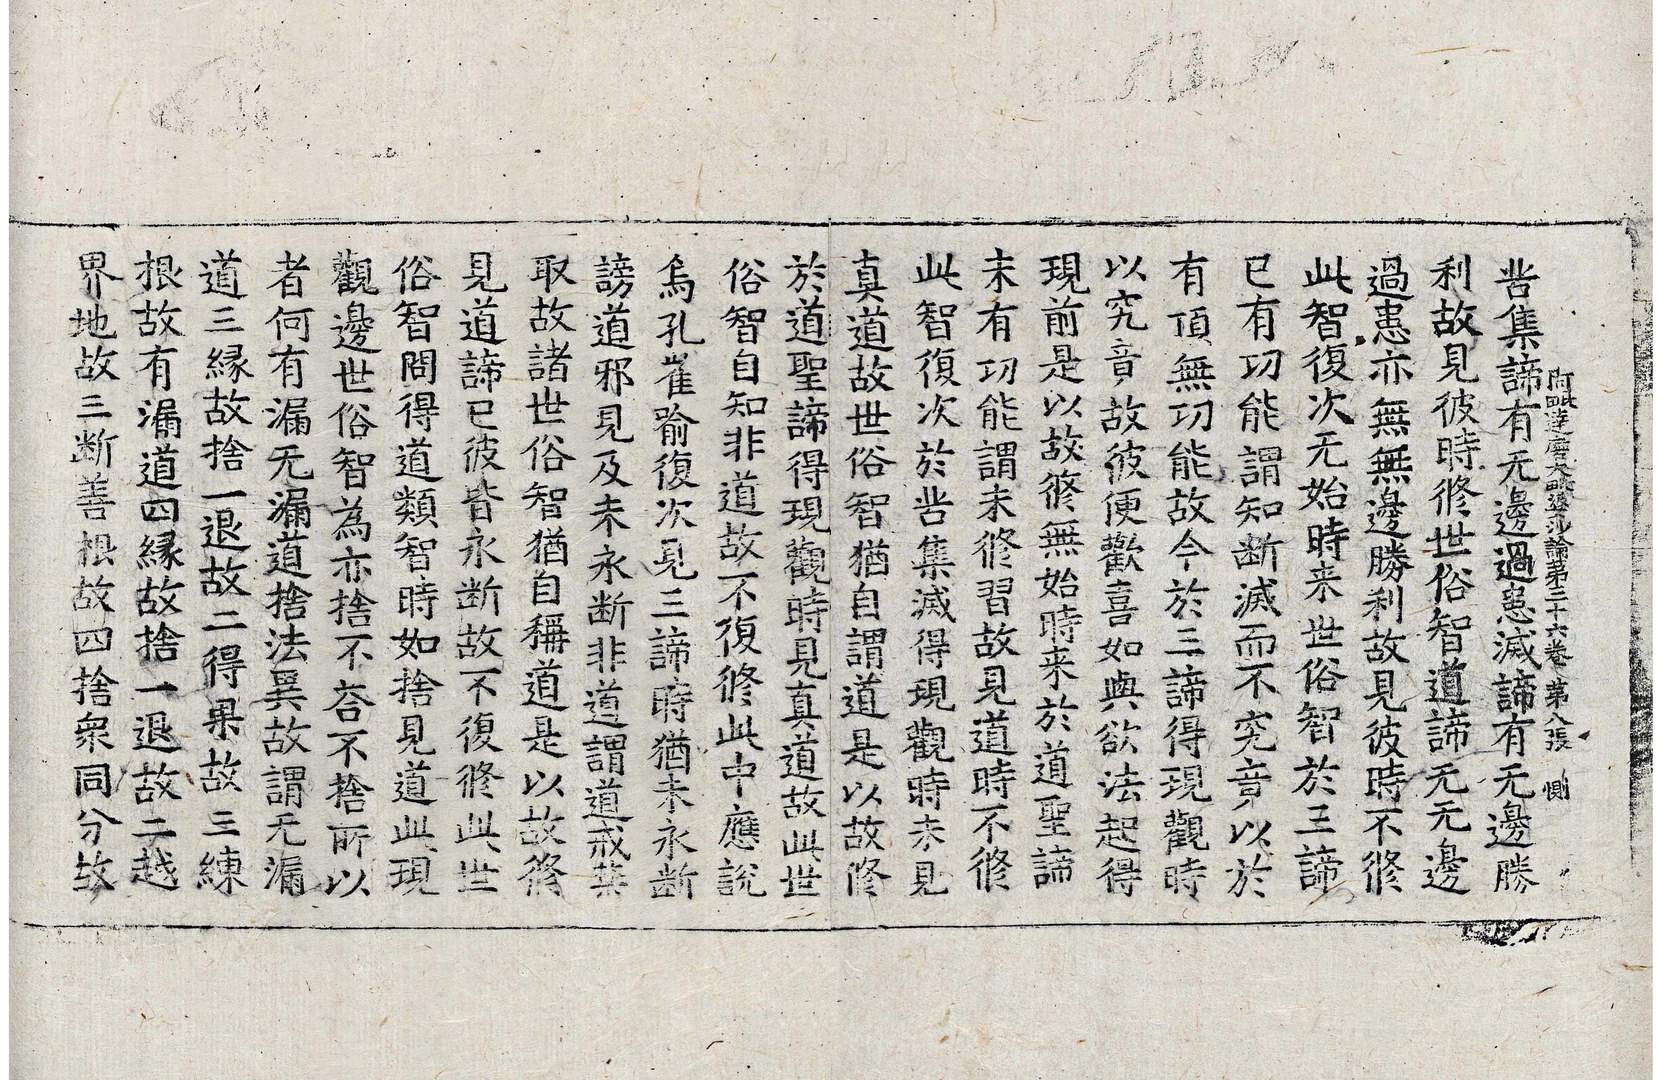 阿毗達磨大毗婆沙論第三十六卷 第八張 惻
苦集諦有无邊過患滅諦有无邊勝
利故見彼時修世俗智道諦无无邊
過患亦無無邊勝利故見彼時不修
此智復次无始時来世俗智於三諦
已有功能謂知断滅而不究竟以於
有頂無功能故今於三諦得現觀時
以究竟故彼便歡喜如與欲法起得
現前是以故修無始時来於道聖諦
未有功能謂未修習故見道時不修
此智復次於苦集滅得現觀時未見
真道故世俗智猶自謂道是以故修
於道聖諦得現觀時見真道故此世
俗智自知非道故不復修此中應說
烏孔雀喻復次見三諦時猶未永断
謗道邪見及未永断非道謂道戒禁
取故諸世俗智猶自稱道是以故修
見道諦已彼皆永断故不復修此世
俗智問得道類智時如捨見道此現
觀邊世俗智為亦捨不荅不捨所以
者何有漏无漏道捨法異故謂无漏
道三縁故捨一退故二得果故三練
根故有漏道四縁故捨一退故二越
界地故三断善根故四捨衆同分故